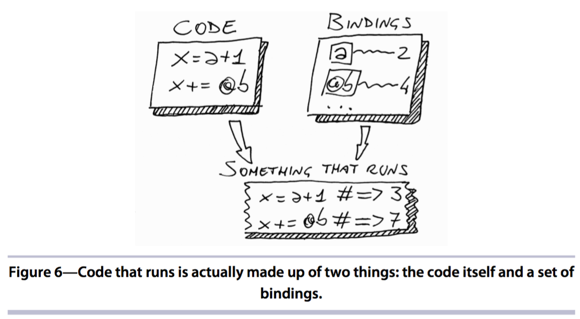 CODE
x=a+1
x+= @b
BINDINGS
a 2
@b 4
...
SOMETHING THAT RUNS
x=a+1 #=> 3
x+= @b #=> 7
Figure 6—Code that runs is actually made up of two things: the code itself and a set of
bindings.